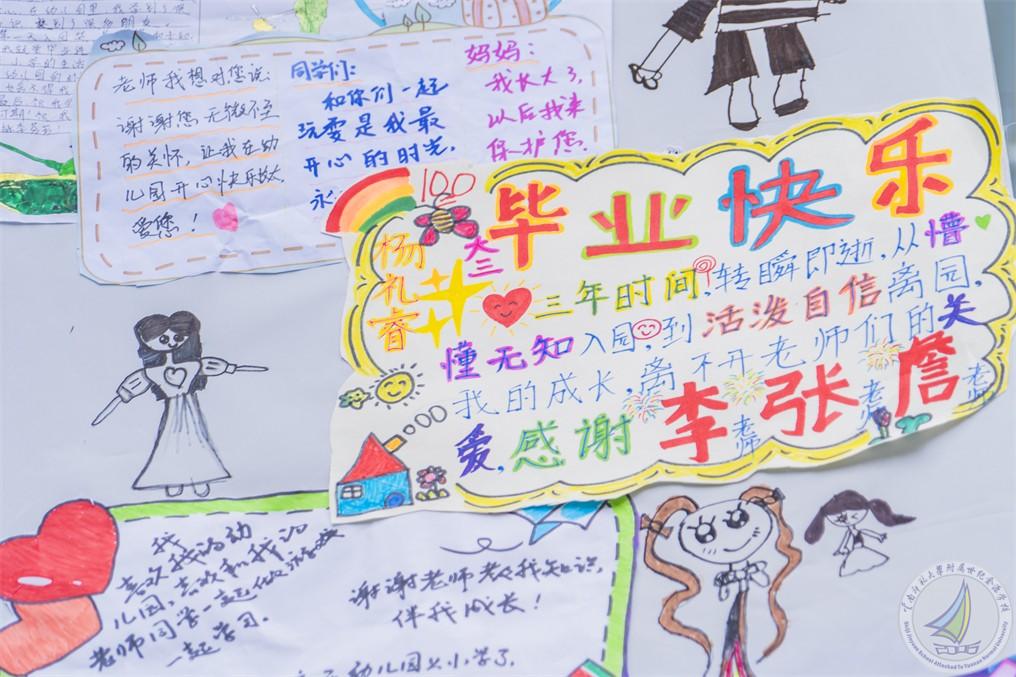 老师我想对您说：
谢谢您无微不至
的关怀，让我在幼
儿园开心快乐长大
爱您！
同学们：
和你们一起
玩耍是我最
开心的时光，
永
妈妈：
我长大了，
以后我来
保护您。
100
毕业快乐
杨礼睿
大三
三年时间，转瞬即逝，从懵
懂无知入园，到活泼自信离园，
我的成长，离不开老师们的关
爱，感谢李老师张老师詹老师
我
喜欢我的幼
儿园，喜欢和我的
老师同学一起做
一起学习.
谢谢老师教我知识，
伴我成长！
幼儿园上小学了.
Affiliated To Yunnan Normal University